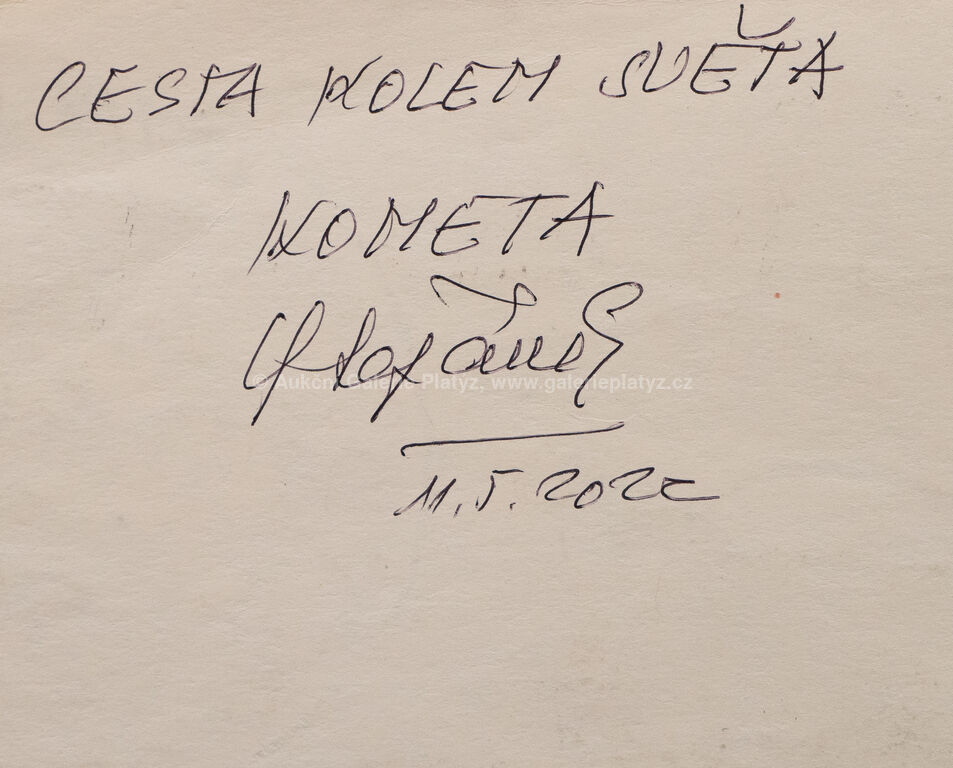 CESTA KOLEM SVĚTA
KOMETA
© Aukční Galerie Platýz, www.galerieplatyz.cz
11.5.2022